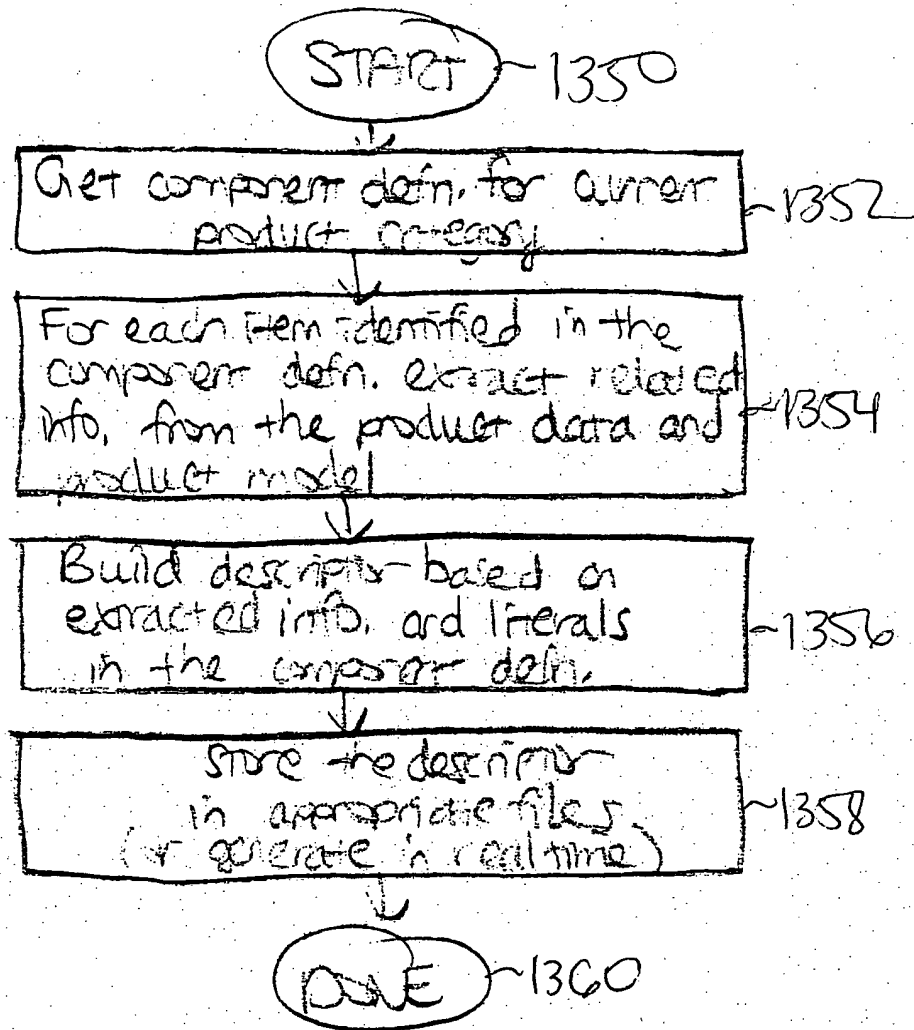 START ~1350
Get component defn. for current
product category
~1352
For each item identified in the
component defn. extract related
info. from the product data and
product model
~1354
Build descriptor based on
extracted info. and literals
in the component defn.
~1356
Store the descriptor
in appropriate files
(or generate in real time)
~1358
DONE ~1360